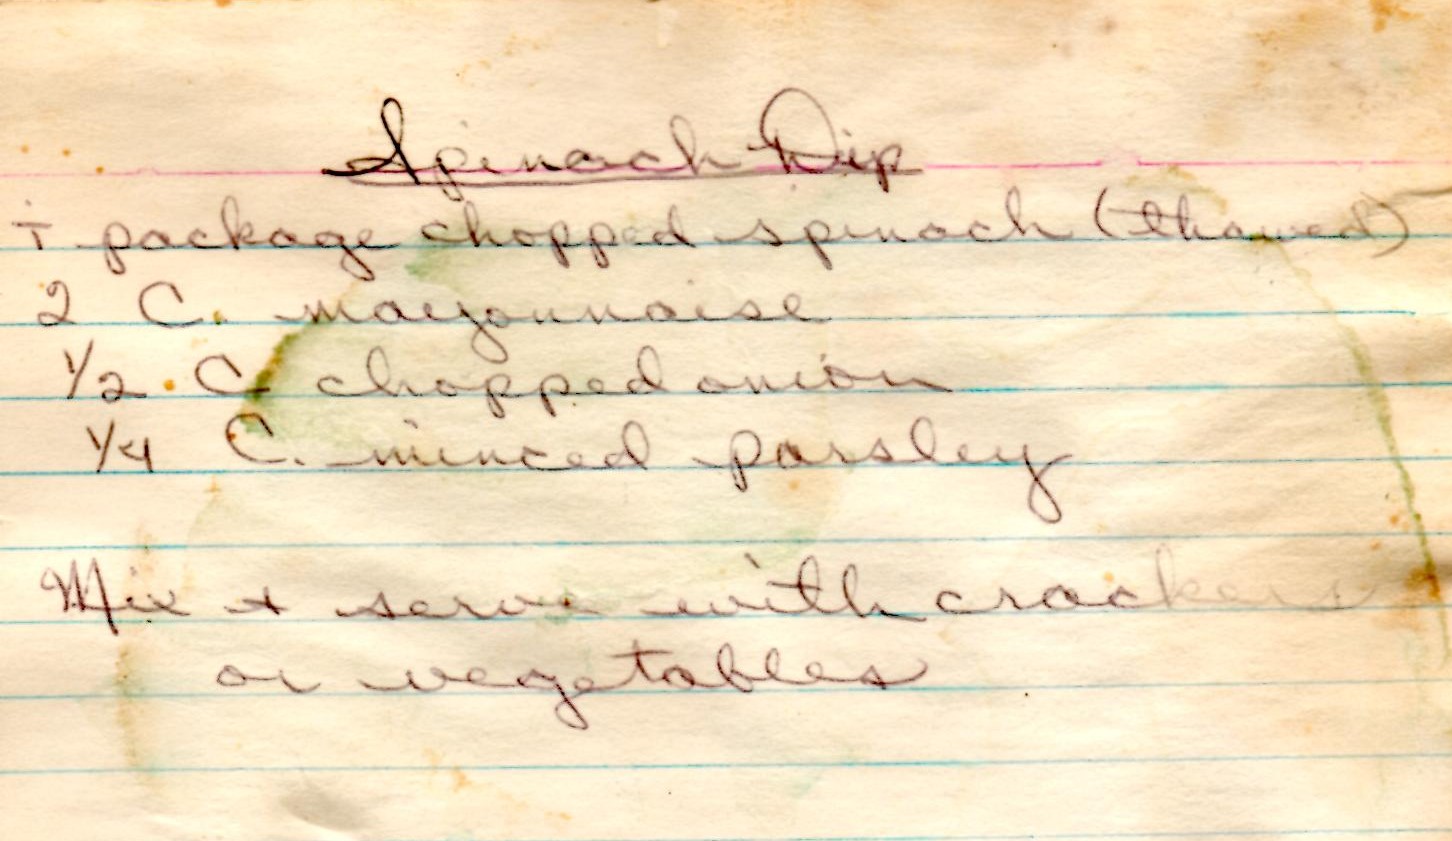 Spinach Dip
1 package chopped spinach (thawed)
2 C. mayonnaise
1/2 C chopped onion
1/4 C. minced parsley
Mix + serve with crackers
or vegetables